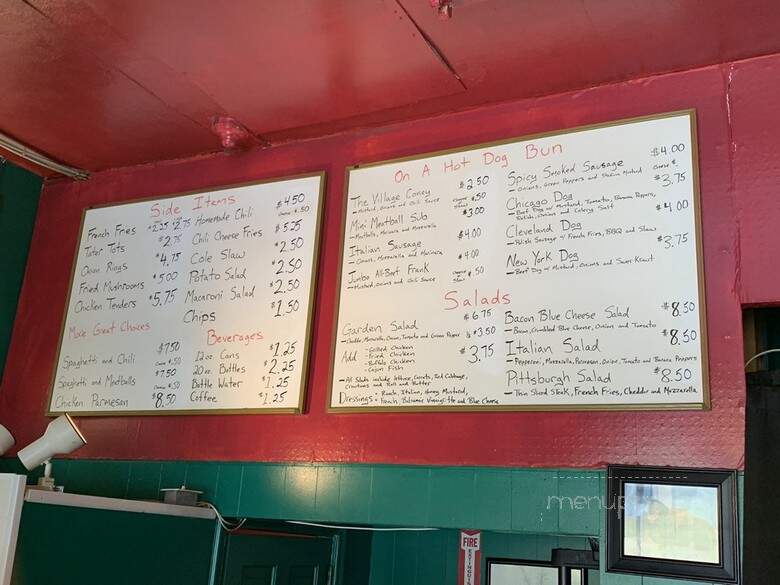 Side Items
French Fries $2.25 $2.75
Tater Tots $2.75
Onion Rings $4.75
Fried Mushrooms $5.00
Chicken Tenders $5.75
Homemade Chili $4.50
Cheese $.50
Chili Cheese Fries $5.25
Cole Slaw $2.50
Potato Salad $2.50
Macaroni Salad $2.50
Chips $1.50
More Great Choices
Spaghetti and Chili $7.50
Cheese $.50
Spaghetti and Meatballs $7.50
Cheese $.50
Chicken Parmesan $8.50
Beverages
12oz. Cans $1.25
20oz. Bottles $2.25
Bottle Water $1.25
Coffee $1.25
On A Hot Dog Bun
The Village Coney $2.50
- Mustard, Onions and Chili Sauce
Cheese $.50
Mini Meatball Sub $3.00
- Meatballs, Marinara and Mozzarella
Italian Sausage $4.00
- Onions, Mozzarella and Marinara
Jumbo All-Beef Frank $4.00
- Mustard, Onions and Chili Sauce
$.50
Spicy Smoked Sausage $4.00
- Onions, Green Peppers and Mustard
Cheese
Chicago Dog $3.75
- Beef Dog w/ Mustard, Tomato, Banana Peppers,
Relish, Onions and Celery Salt
Cleveland Dog $4.00
- Polish Sausage w/ French Fries, BBQ and Slaw
New York Dog $3.75
- Beef Dog w/ Mustard, Onions and Sauer Kraut
Salads
Garden Salad $6.75
- Cheddar, Mozzarella, Onion, Tomato and Green Pepper
Add - Grilled Chicken $3.50
- Fried Chicken
- Buffalo Chicken
- Cajun Fish $3.75
- All Salads include lettuce, Carrots, Red Cabbage,
Croutons and Roll and Butter
Dressings: Ranch, Italian, Honey Mustard,
French, Balsamic Vinaigrette and Blue Cheese
Bacon Blue Cheese Salad $8.50
- Bacon, Crumbled Blue Cheese, Onions and Tomato
Italian Salad $8.50
- Pepperoni, Mozzarella, Parmesan, Onion, Tomato and Banana Peppers
Pittsburgh Salad $8.50
- Thin Sliced Steak, French Fries, Cheddar and Mozzarella
FIRE
EXTINGUISHER